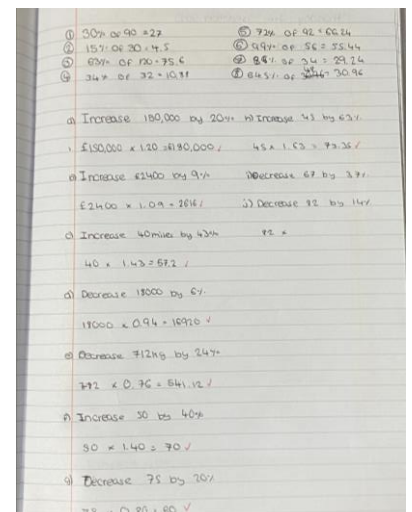 ① 30% of 90 = 27
② 15% of 30 = 4.5
③ 63% of 120 = 75.6
④ 34% of 32 = 10.88
⑤ 72% of 92 = 66.24
⑥ 99% of 56 = 55.44
⑦ 86% of 34 = 29.24
⑧ 64.5% of 48 = 30.96
a) Increase 150,000 by 20%
£150,000 × 1.20 = £180,000 ✓
b) Increase £2400 by 9%
£2400 × 1.09 = 2616 ✓
c) Increase 40 miles by 43%
40 × 1.43 = 57.2 ✓
d) Decrease 18000 by 6%
18000 × 0.94 = 16920 ✓
e) Decrease 712kg by 24%
712 × 0.76 = 541.12 ✓
f) Increase 50 by 40%
50 × 1.40 = 70 ✓
g) Decrease 75 by 20%
h) Increase 45 by 63%
45 × 1.63 = 73.35 ✓
i) Decrease 67 by 37%
j) Decrease 82 by 14%
82 ×